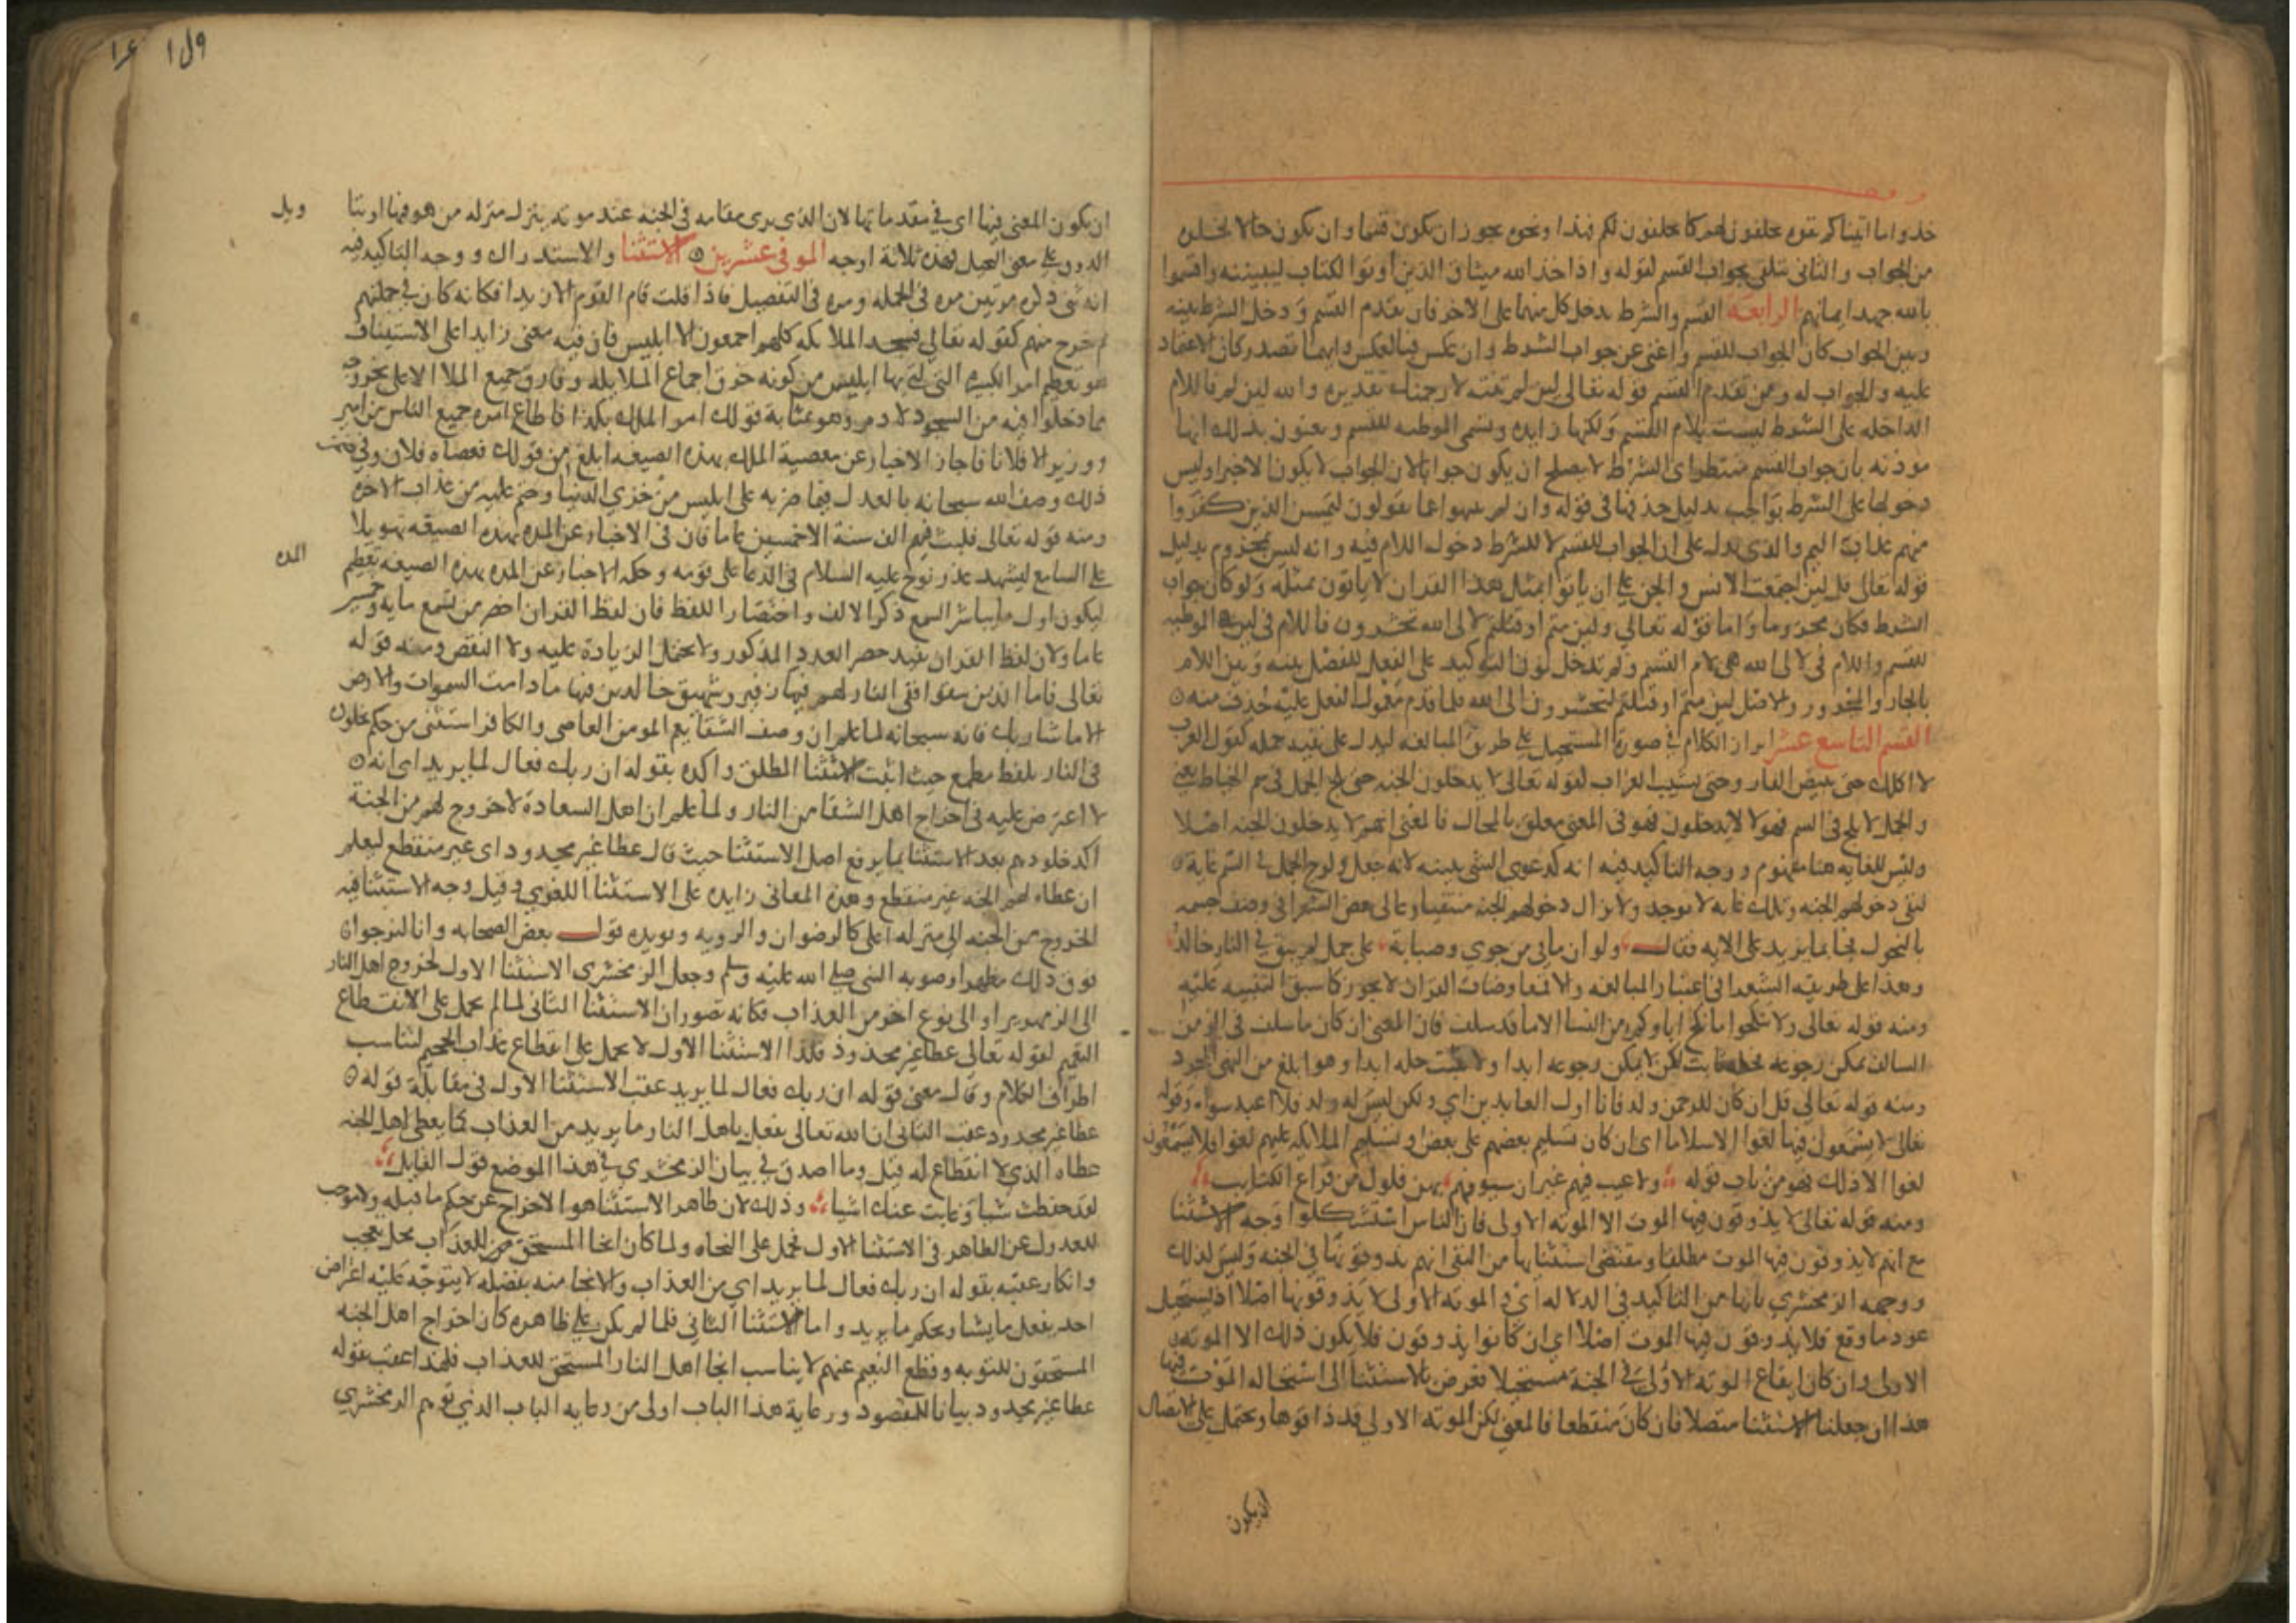 خذوا ما اتيناكم بقوه يحلفون لهم كما يحلفون لكم فهذا ونحوه يجوز ان يكون قسما وان يكون حالا لخلوه
من الجواب والثانى يتلقى بجواب القسم لقوله واذ اخذ الله ميثاق الذين اوتوا الكتاب ليبيننه واقسموا
بالله جهد ايمانهم الرابعه القسم والشرط يدخل كل منهما على الاخر فان تقدم القسم ودخل الشرط بينه
وبين الجواب كان الجواب للقسم واغنى عن جواب الشرط وان عكس فبالعكس وايهما تصدر كان الاعتماد
عليه والجواب له ومن تقدم القسم قوله تعالى لين لم تنته لارجمنك تقديره والله لين لم فاللام
الداخله على الشرط ليست بلام القسم ولكنها زايده وتسمى الموطيه للقسم ويعنون بذلك انها
موذنه بان جواب القسم منتظر اى الشرط لا يصلح ان يكون جوابا لان الجواب لا يكون الا خبرا وليس
دخولها على الشرط بواجب بدليل حذفها فى قوله وان لم ينتهوا عما يقولون ليمسن الذين كفروا
منهم عذاب اليم والذى يدل على ان الجواب للقسم لا للشرط دخول اللام فيه وانه ليس بمجزوم بدليل
قوله تعالى قل لين اجتمعت الانس والجن على ان ياتوا بمثل هذا القران لا ياتون بمثله ولو كان جواب
الشرط لكان مجزوما واما قوله تعالى ولين متم او قتلتم لالى الله تحشرون فاللام فى لين هى الموطيه
للقسم واللام فى لالى الله هى لام القسم ولم تدخل نون التوكيد على الفعل للفصل بينه وبين اللام
بالجار والمجرور والاصل لين متم او قتلتم لتحشرون الى الله فلما قدم معمول الفعل عليه حذف منه
القسم التاسع عشر ابراز الكلام فى صورة المستحيل على طريق المبالغه ليدل على بقيه جمله كقول العرب
لا اكلك حتى يبيض القار وحتى يشيب الغراب لقوله تعالى لا يدخلون الجنه حتى يلج الجمل فى سم الخياط يعنى
والجمل لا يلج فى السم فهولا لا يدخلون فهو فى المعنى معلق بالمحال فالمعنى انهم لا يدخلون الجنه اصلا
وليس للغايه هنا مفهوم ووجه التاكيد فيه انه كدعوى الشى ببينه لانه جعل ولوج الجمل فى السم غاية
لنفى دخولهم الجنه وتلك غايه لا توجد ولا يزال دخولهم الجنه منتفيا وغالى بعض الشعرا فى وصف جسمه
بالنحول فجا بما يزيد على الايه فقال ولو ان مابى من جوي وصبابة على جمل لم يبق فى النار خالد
وهذا على طريقه الشعرا فى اعتبار المبالغه والا فمعارضات القران لا يجوز كما سبق التنبيه عليه
ومنه قوله تعالى ولا تنكحوا ما نكح اباوكم من النسا الا ما قد سلف فان المعنى ان كان ما سلف فى الزمن
السالف يمكن رجوعه فحله ثابت لكن لا يمكن رجوعه ابدا ولا يثبت حله ابدا وهو ابلغ من النهى المجرد
ومنه قوله تعالى قل ان كان للرحمن ولد فانا اول العابدين اي ولكن ليس له ولد فلا اعبد سواه وقوله
تعالى لا يسمعون فيها لغوا الا سلاما اى ان كان تسليم بعضهم على بعض او تسليم الملايكه عليهم لغوا فلا يسمعون
لغوا الا ذلك فهو من باب قوله ولا عيب فيهم غير ان سيوفهم بهن فلول من قراع الكتايب
ومنه قوله تعالى لا يذوقون فيها الموت الا الموته الاولى فان الناس استشكلوا وجه الاستثنا
مع انهم لا يذوقون فيها الموت مطلقا ومقتضى استثنايها من النفى انهم يذوقونها فى الجنه وليس لذلك
ووجهه الزمخشرى بانها من التاكيد فى الدلاله اي فى الموته الاولى لا يذوقونها اصلا اذ يستحيل
عود ما وقع فلا يذوقون فيها الموت اصلا اي ان كانوا يذوقون فلا يكون ذلك الا الموته
الاولى وان كان ايقاع الموته الاولى فى الجنة مستحيلا فعرض بالاستثنا الى استحاله الموت فيها
هذا ان جعلنا الاستثنا متصلا فان كان منقطعا فالمعنى لكن الموته الاولى قد ذاقوها ويحتمل على الاتصال
ان يكون
ان يكون المعنى فيها اى فى مقدماتها لان الذى يرى مقامه فى الجنه عند موته ينزل منزله من هو فيها
الذوق على معنى لهذه ثلاثة اوجه الموفى عشرين الاستثنا والاستدراك ووجه التاكيد فيه
انه ثنى ذكره مرتين مره فى الجمله ومره فى التفصيل فاذا قلت قام القوم الا زيدا فكانه كان فى جملتهم
ثم خرج منهم كقوله تعالى فسجد الملايكه كلهم اجمعون الا ابليس فان فيه معنى زايدا على الاستيناف
هو تعظيم امر الكبيره التى اتى بها ابليس من كونه خرق اجماع الملايكه وفارق جميع الملا الاعلى بخروجه
مما دخلوا فيه من السجود لادم وهو بمثابة قولك امر الملك بكذا فاطاع امره جميع الناس من امير
ووزير الا فلانا فاجاز الاخبار عن معصية الملك بهذه الصيغه ابلغ من قولك فعصاه فلان وفى ضمن
ذلك وصف الله سبحانه بالعدل فيما ضربه على ابليس من خزي الدنيا وختم عليه من عذاب الاخره
ومنه قوله تعالى فلبث فيهم الف سنة الا خمسين عاما فان فى الاخبار عن المده بهذه الصيغه تهويلا
على السامع ليشهد عذر نوح عليه السلام فى الدعا على قومه وحكمه الاخبار عن المده بهذه الصيغه تعظيم
المده
ليكون اول ما يباشر السمع ذكر الالف واختصارا للفظ فان لفظ القران اخصر من تسع مايه وخمسين
عاما ولان لفظ القران يفيد حصر العدد المذكور ولا يحتمل الزيادة عليه ولا النقص ومنه قوله
تعالى فاما الذين شقوا ففى النار لهم فيها زفير وشهيق خالدين فيها ما دامت السموات والارض
الا ما شا ربك فانه سبحانه لما علم ان وصف الشقا يعم المومن العاصى والكافر استثنى من حكم بخلود
فى النار بلفظ مطمع حيث اثبت الاستثنا المطلق واكده بقوله ان ربك فعال لما يريد اى انه
لا اعتراض عليه فى اخراج اهل الشقا من النار ولما علم ان اهل السعادة لا خروج لهم من الجنة
اكد خلودهم بعد الاستثنا بما يرفع اصل الاستثنا حيث قال عطا غير مجذوذ اى غير منقطع ليعلم
ان عطاه لهم الجنه غير منقطع وهذه المعانى زايده على الاستثنا اللغوي وقيل وجه الاستثنا فيه
الخروج من الجنه الى منزله اعلى كالرضوان والرويه ويويده قول بعض الصحابه وانا لنرجوا
فوق ذلك مظهرا وصوبه النبى صلى الله عليه وسلم وجعل الزمخشرى الاستثنا الاول لخروج اهل النار
الى الزمهرير او الى نوع اخر من العذاب فكانه تصور ان الاستثنا الثانى لما لم يحمل على الانقطاع
النعيم لقوله تعالى عطا غير مجذوذ فكذا الاستثنا الاول لا يحمل على انقطاع عذاب الجحيم لتناسب
اطراف الكلام وقال معنى قوله ان ربك فعال لما يريد عقب الاستثنا الاول فى مقابلة قوله
عطا غير مجذوذ عقب الثانى ان الله تعالى يفعل باهل النار ما يريد من العذاب كما يعطى اهل الجنه
عطاه الذي لا انقطاع له قيل وما اصدق فى بيان الزمخشرى فى هذا الموضع قول القايل
لقد حفظت شيا وغابت عنك اشيا وذلك لان ظاهر الاستثنا هو الاخراج عن حكم ما قبله ولا موجب
للعدول عن الظاهر فى الاستثنا الاول فحمل على النجاه ولما كان انجا المستحق من العذاب محل تعجب
وانكار عقبه بقوله ان ربك فعال لما يريد اي من العذاب والانجا منه بفضله لا يتوجه عليه اعتراض
احد يفعل ما يشا ويحكم ما يريد واما الاستثنا الثانى فلما لم يكن على ظاهره كان اخراج اهل الجنه
المستحقون للثوبه وقطع النعيم عنهم لا يناسب انجا اهل النار المستحق للعذاب فلهذا عقب بقوله
عطا غير مجذوذ بيانا للمقصود ورعاية هذا الباب اولى من رعايه الباب الذي توهم الزمخشري